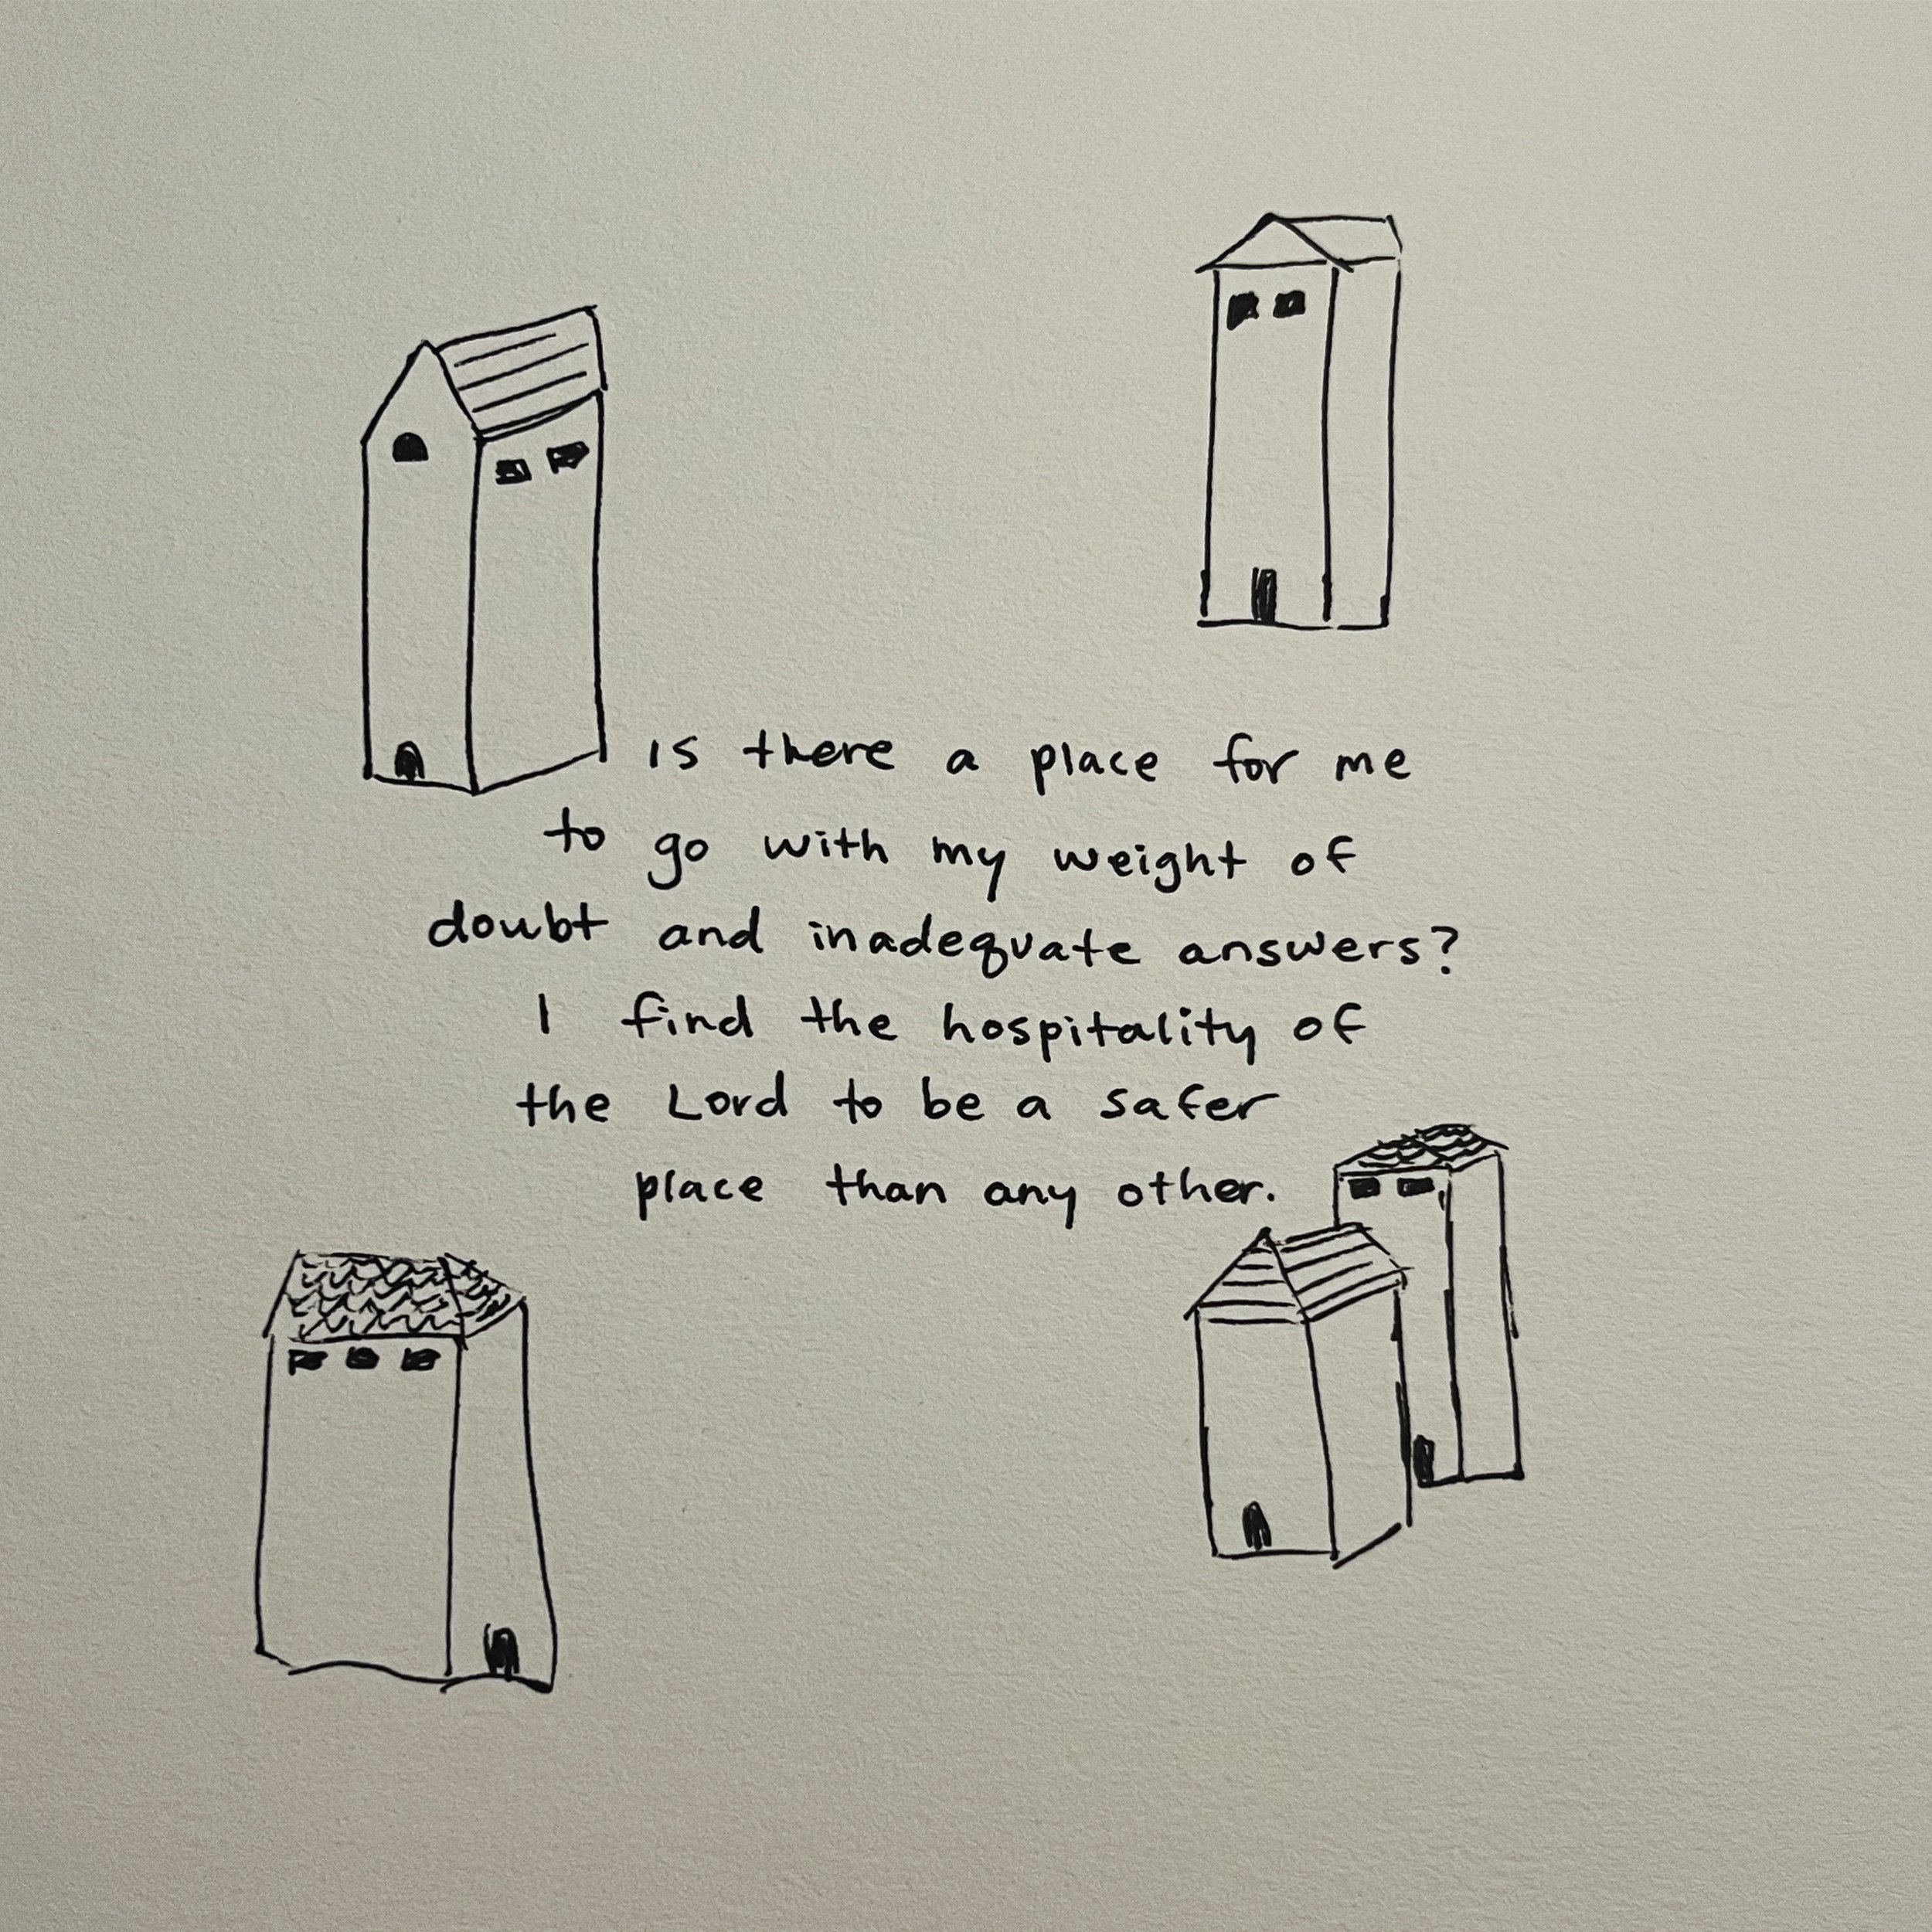 is there a place for me
to go with my weight of
doubt and inadequate answers?
I find the hospitality of
the Lord to be a safer
place than any other.